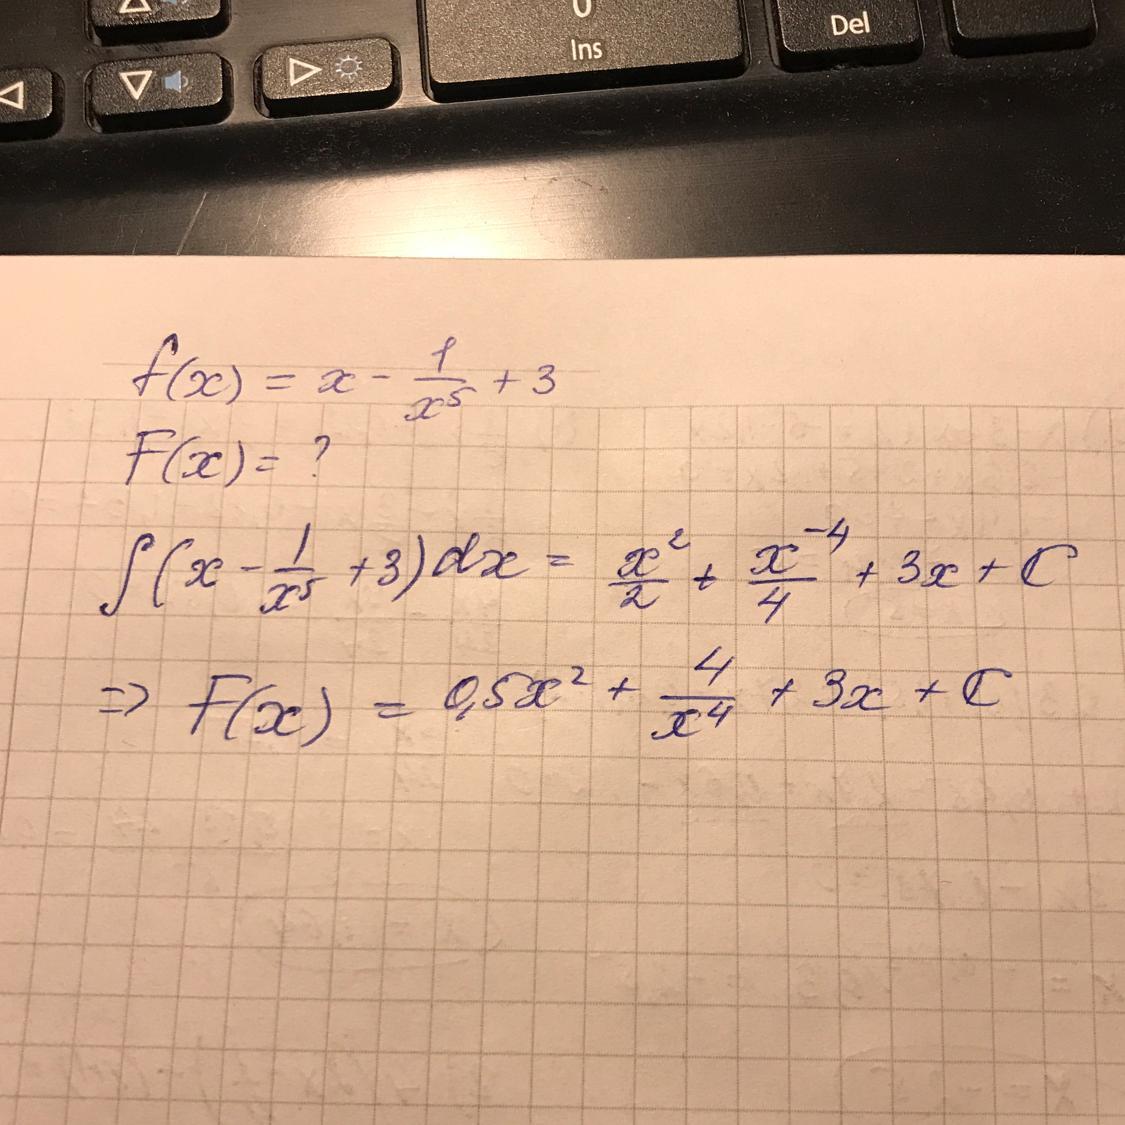 0
Ins
Del
f(x) = x - 1/x⁵ + 3
F(x) = ?
∫(x - 1/x⁵ + 3)dx = x²/2 + x⁻⁴/4 + 3x + C
=> F(x) = 0,5x² + 4/x⁴ + 3x + C